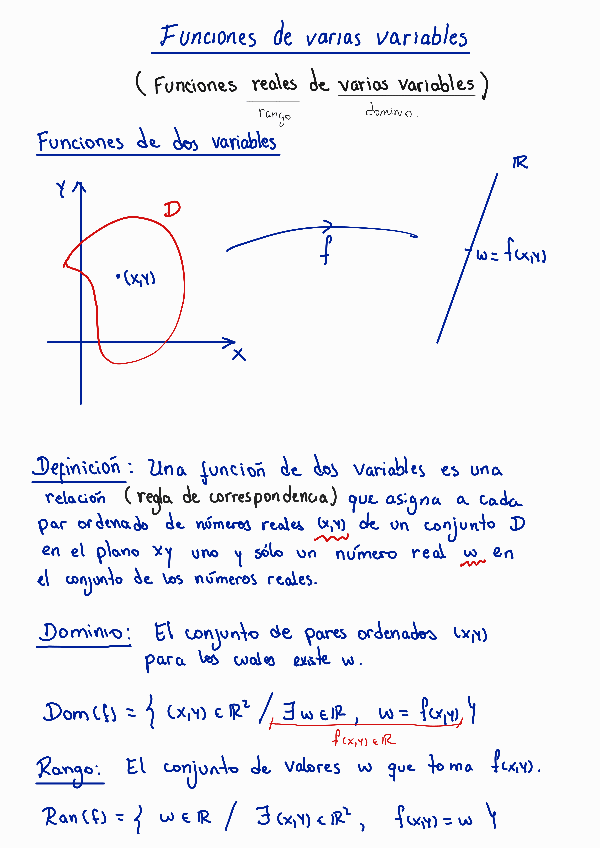 Funciones de varias variables
(Funciones reales de varias variables)
rango dominio.
Funciones de dos variables
Y D ℝ
•(x,y) f w = f(x,y)
X
Definición: Una función de dos variables es una
relación (regla de correspondencia) que asigna a cada
par ordenado de números reales (x,y) de un conjunto D
en el plano xy uno y sólo un número real w en
el conjunto de los números reales.
Dominio: El conjunto de pares ordenados (x,y)
para los cuales existe w.
Dom(f) = { (x,y) ∈ ℝ² / ∃ w ∈ ℝ, w = f(x,y) }
f(x,y) ∈ ℝ
Rango: El conjunto de valores w que toma f(x,y).
Ran(f) = { w ∈ ℝ / ∃ (x,y) ∈ ℝ², f(x,y) = w }